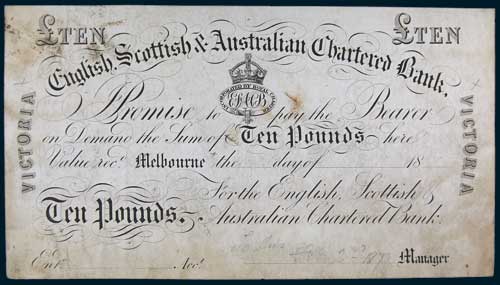 £TEN £TEN
English, Scottish & Australian Chartered Bank.
INCORPORATED BY ROYAL CHARTER
I Promise to pay the Bearer
on Demand the Sum of Ten Pounds here
Value recd. Melbourne the day of 18
For the English, Scottish
Ten Pounds. Australian Chartered Bank.
Entd. Acct. Manager
VICTORIA
VICTORIA